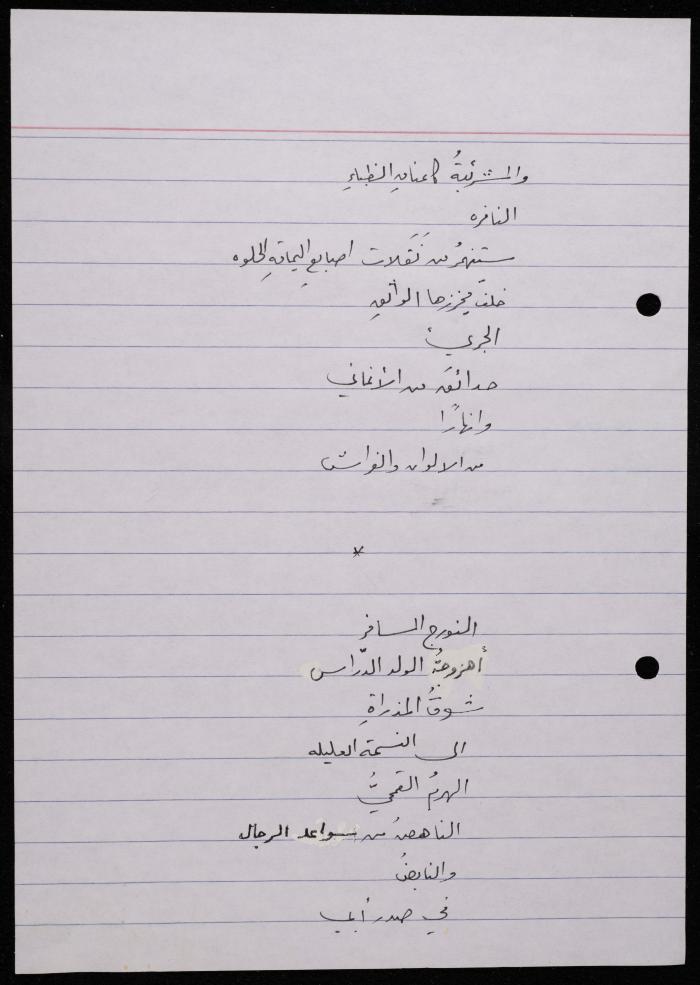 والمشرئبةُ كاعناقِ الظباءِ
النافره
ستنهمرُ من نَقَلات اصابعِ اليافةِ الحلوه
خلف مخرزها الواثقِ
الجريءْ
حدائقَ من الأغاني
وانهارًا
من الالوان والفراش
*
النورج المسافر
أُهزوجةُ الولد الدّراس
شوقُ المذراةِ
الى النسمة العليله
الهرمُ القمحيُّ
الناهضُ من سواعد الرجال
والنابضُ
في صدر أبي